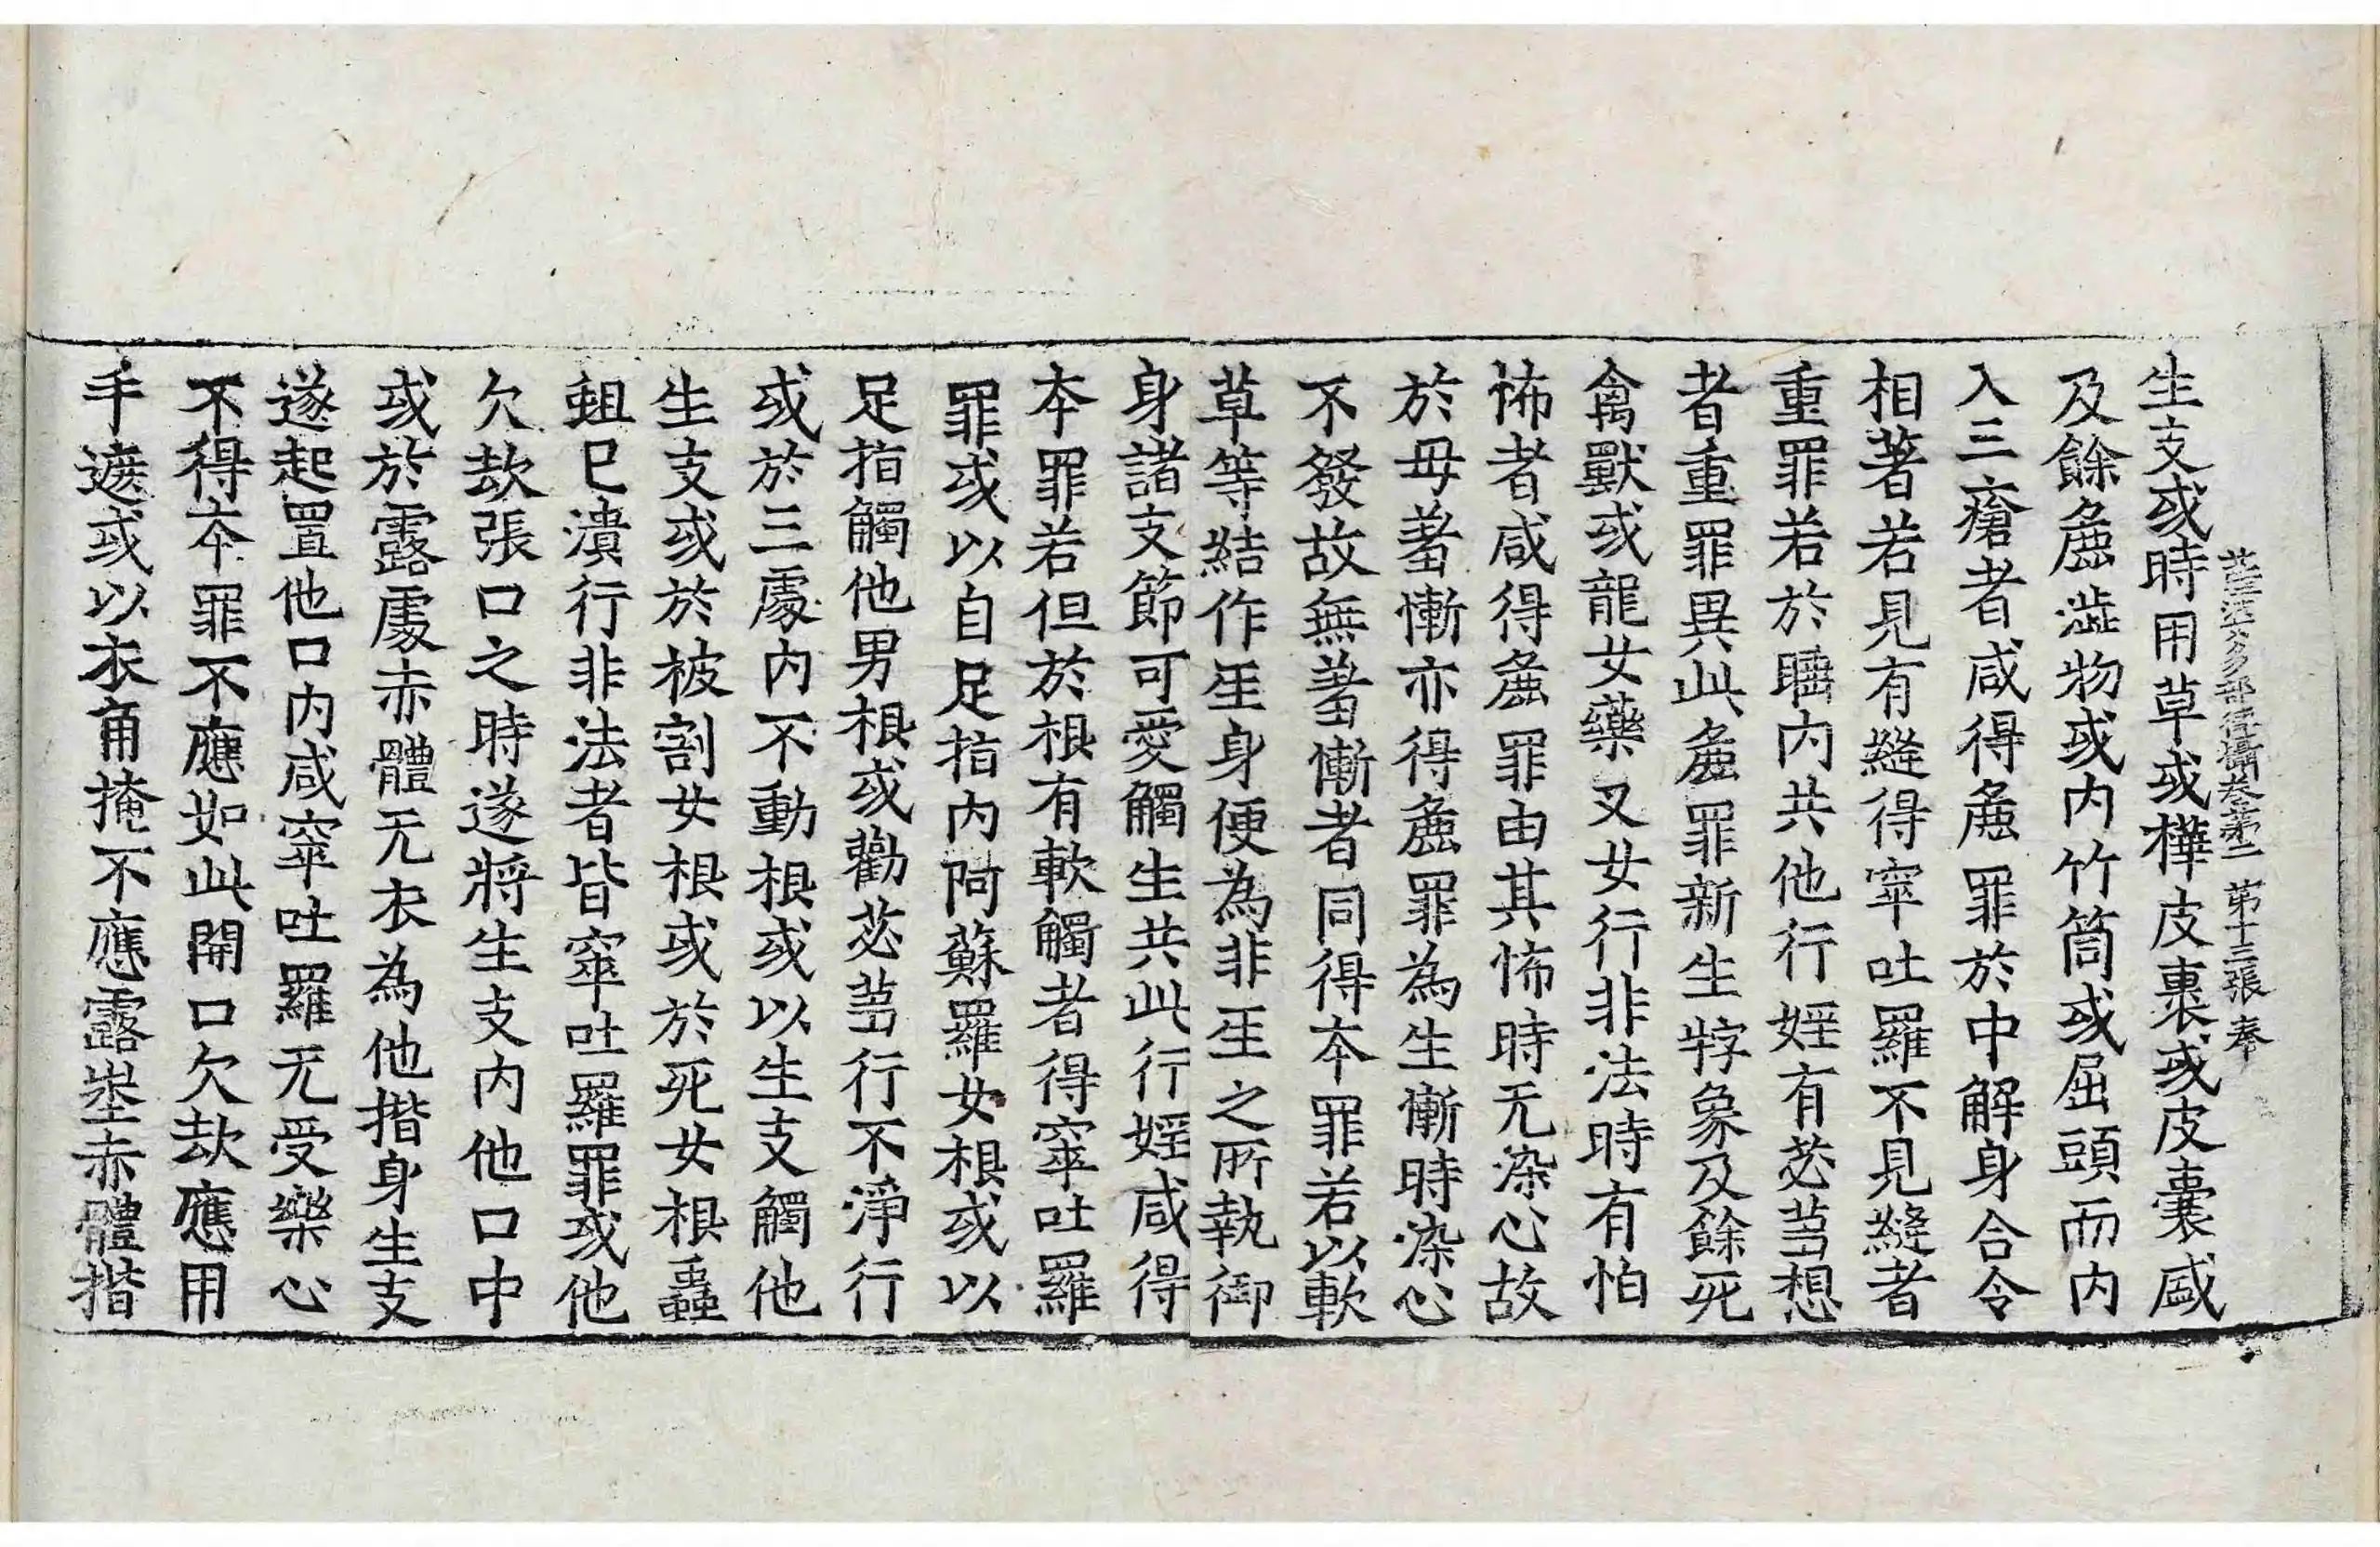 薩婆多部律攝卷第二 第十三張 奉
生支或時用草或樺皮裹或皮囊咸
及餘麁澁物或内竹筒或屈頭而内
入三瘡者咸得麁罪於中解身合令
相著若見有縫得窣吐羅不見縫者
重罪若於瞔内共他行婬有苾芻想
者重罪異此麁罪新生牸象及餘死
禽獸或龍女藥叉女行非法時有怕
怖者咸得麁罪由其怖時无染心故
於母著慚亦得麁罪為生慚時染心
不發故無著慚者同得本罪若以軟
草等結作坐身便為非坐之所執御
身諸支節可愛觸生共此行婬咸得
本罪若但於根有軟觸者得窣吐羅
罪或以自足指内阿蘇羅女根或以
足指觸他男根或勸苾芻行不淨行
或於三處内不動根或以生支觸他
生支或於被割女根或於死女根蟲
蛆已潰行非法者皆窣吐羅罪或他
欠欬張口之時遂將生支内他口中
或於露處赤體无衣為他揩身生支
遂起置他口内咸窣吐羅无受樂心
不得本罪不應如此開口欠欬應用
手遮或以衣角掩不應露坐赤體揩